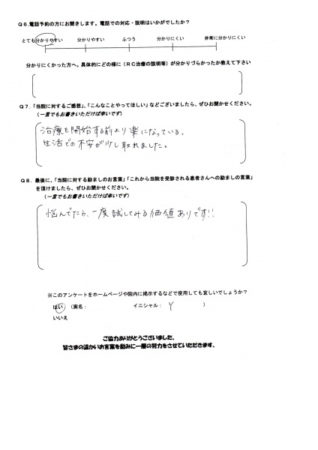 Q6.電話予約の方にお聞きします。電話での対応・説明はいかがでしたか？
とても分かりやすい　分かりやすい　ふつう　分かりにくい　非常に分かりにくい
分かりにくかった方へ。具体的にどの様に（RC治療の説明等）が分かりづらかったか教えて下さい
Q7.「当院に対するご感想」、「こんなことやってほしい」などございましたら、ぜひお聞かせください。
（一言でもお書きいただければ幸いです）
治療を開始する前より楽になっている。
生活での不安が少し取れました。
Q8.最後に、「当院に対する励ましのお言葉」「これから当院を受診される患者さんへの励ましの言葉」
を頂けましたら、ぜひお聞かせください。
（一言でもお書きいただければ幸いです）
悩んでたら、一度試してみる価値ありです!!
※このアンケートをホームページや院内に掲示するなどで使用しても宜しいでしょうか？
はい（実名：　イニシャル：Y　）
いいえ
ご協力ありがとうございました。
皆さまの温かいお言葉を励みに一層の努力をさせていただきます。